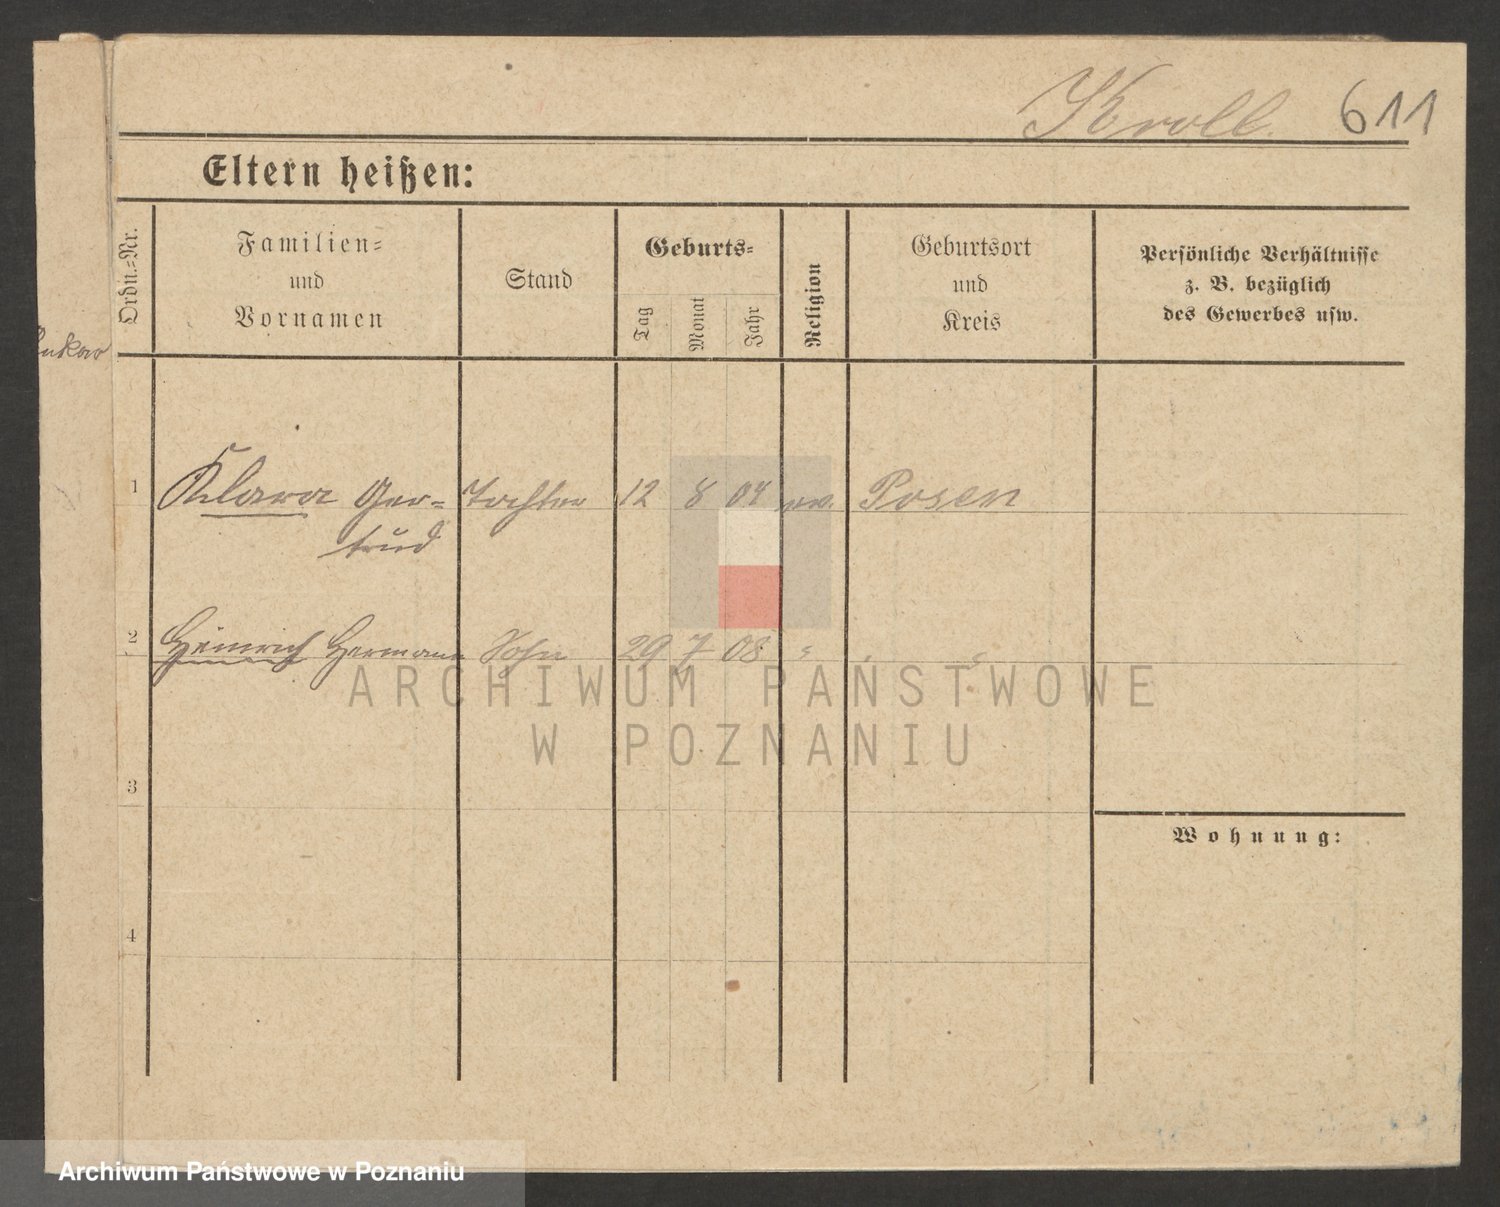 Kroll. 611
Eltern heißen:
Ordn.-Nr.
Familien-
und
Vornamen
Stand
Geburts-
Tag
Monat
Jahr
Religion
Geburtsort
und
Kreis
Persönliche Verhältnisse
z. B. bezüglich
des Gewerbes usw.
1 Klara Ger- Tochter 12 8 04 ev. Posen
trud
2 Heinrich Hermann Sohn 29 7 08 " "
ARCHIWUM PAŃSTWOWE
W POZNANIU
3
Wohnung:
4
Archiwum Państwowe w Poznaniu